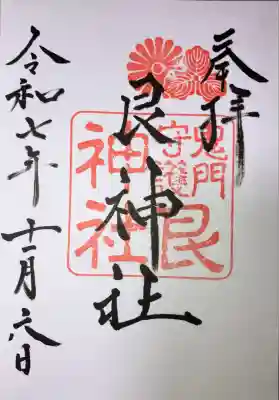 奉拝
鬼門
守護
艮
神社
艮神社
令和七年十一月六日